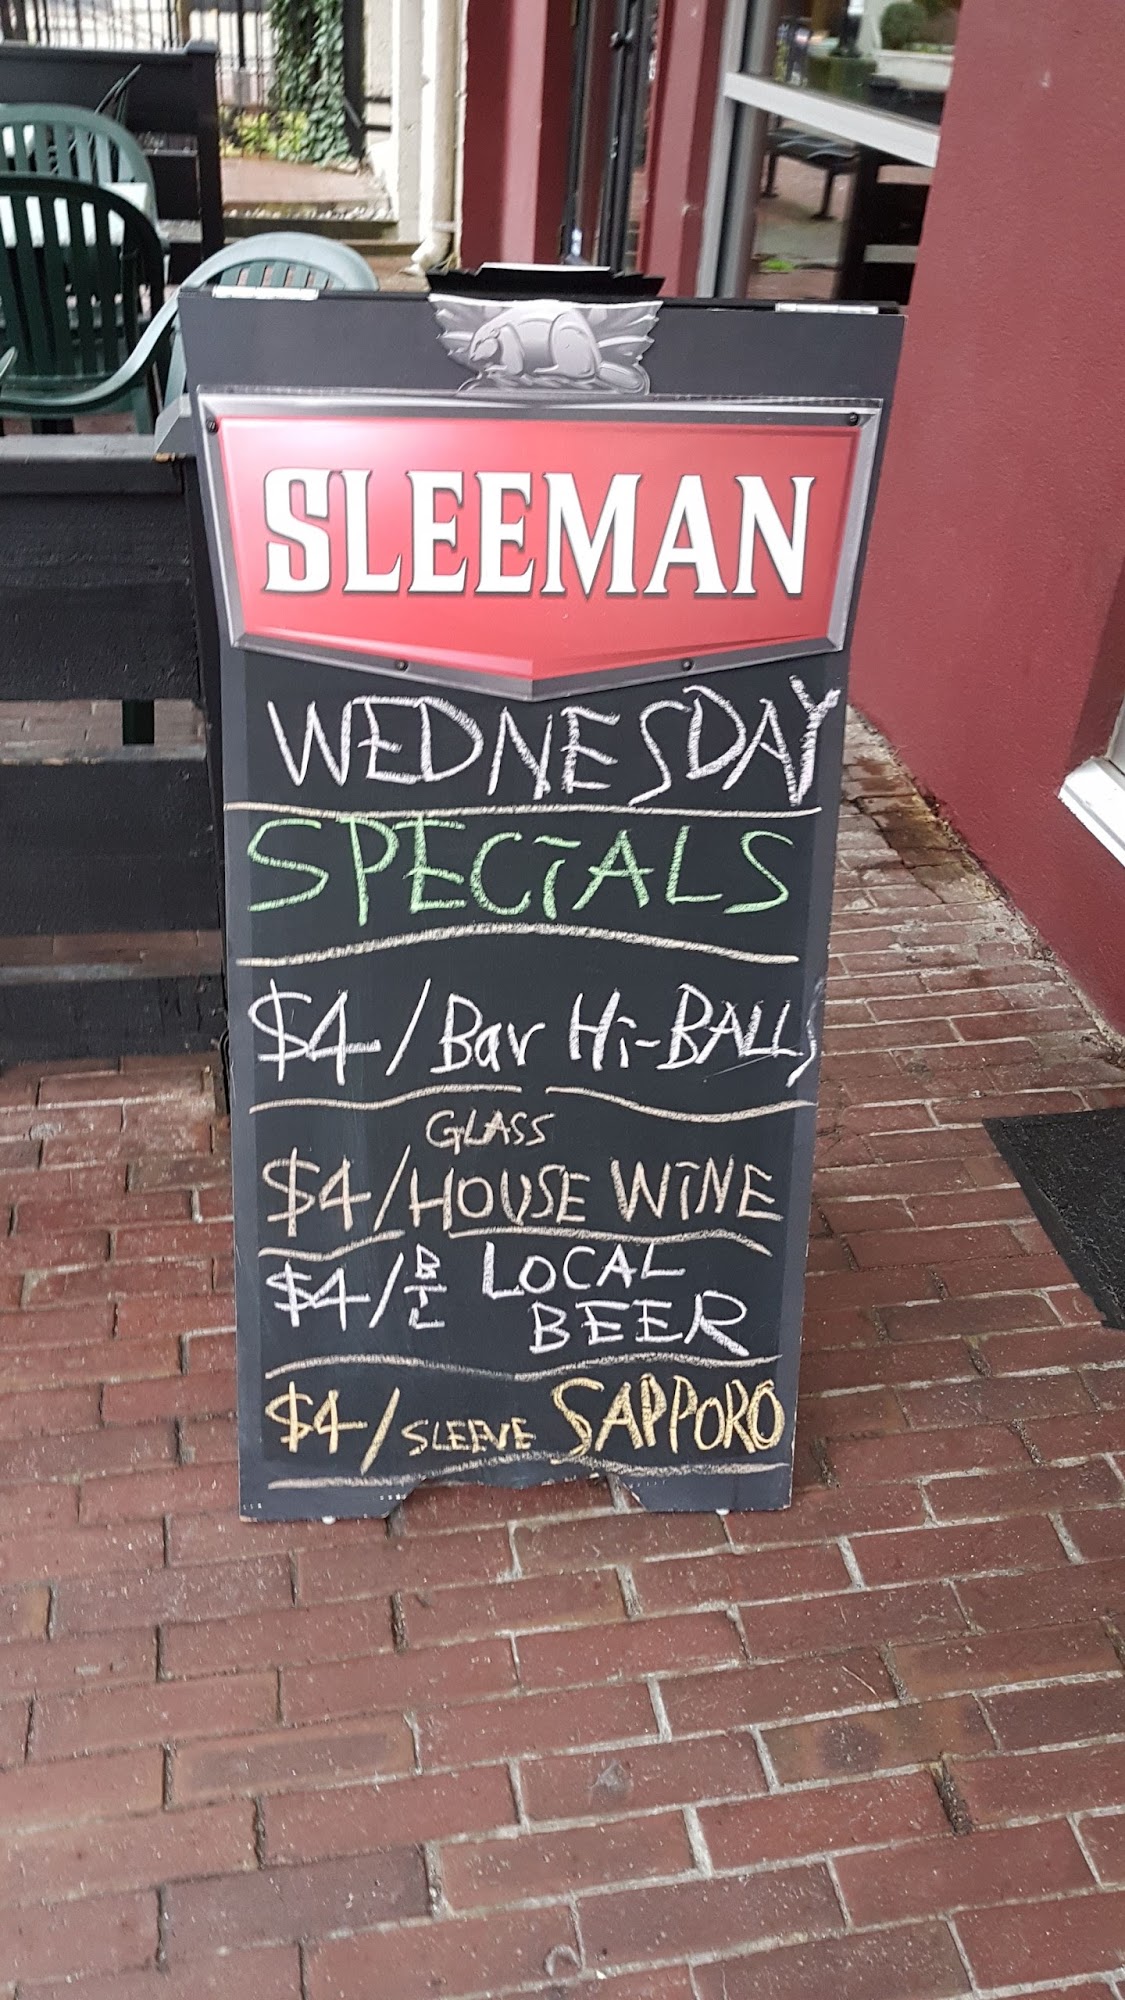 SLEEMAN
WEDNESDAY
SPECIALS
$4/Bar Hi-BALLS
GLASS
$4/HOUSE WINE
$4/ LOCAL
BEER
$4/SLEEVE SAPPORO